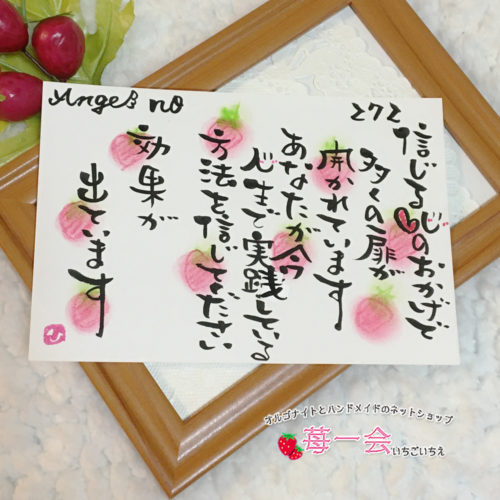 Angel's no
272
信じる心のおかげで
多くの扉が
開かれています
あなたが今
人生で実践している
方法を信じてください
効果が
出ています
オルゴナイトとハンドメイドのネットショップ
苺一会 いちごいちえ